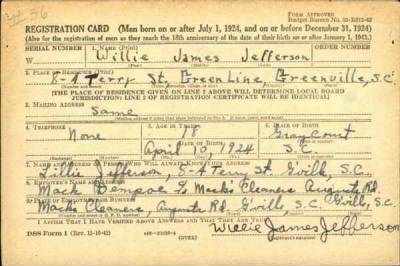 # 36
FORM APPROVED
Budget Bureau No.
REGISTRATION CARD (Men born on or after July 1, 1924, and on or before December 31, 1924)
(Also for the registration of men as they reach the 18th anniversary of the date of their birth on or after January 1, 1943.)
SERIAL NUMBER 1. NAME (Print)
Willie James Jefferson
2. PLACE OF RESIDENCE (Print)
8-A Terry St. Green Line, Greenville, S.C.
[THE PLACE OF RESIDENCE GIVEN ON LINE 2 ABOVE WILL DETERMINE LOCAL BOARD
JURISDICTION; LINE 2 OF REGISTRATION CERTIFICATE WILL BE IDENTICAL]
3. MAILING ADDRESS
Same
4. TELEPHONE 5. AGE IN YEARS 6. PLACE OF BIRTH
None 18 Gray Court
DATE OF BIRTH
April 10, 1924 S.C.
7. NAME AND ADDRESS OF PERSON WHO WILL ALWAYS KNOW YOUR ADDRESS
Lillie Jefferson, 8-A Terry St. Gville, S.C.
8. EMPLOYER'S NAME AND ADDRESS
Mack Macks Cleaners Augusta Rd.
9. PLACE OF EMPLOYMENT OR BUSINESS
Macks Cleaners, Augusta Rd. Gville S.C. Gville, S.C.
I AFFIRM THAT I HAVE VERIFIED ABOVE ANSWERS AND THAT THEY ARE TRUE.
DSS Form 1 (Rev. 11-16-42)
Willie James Jefferson